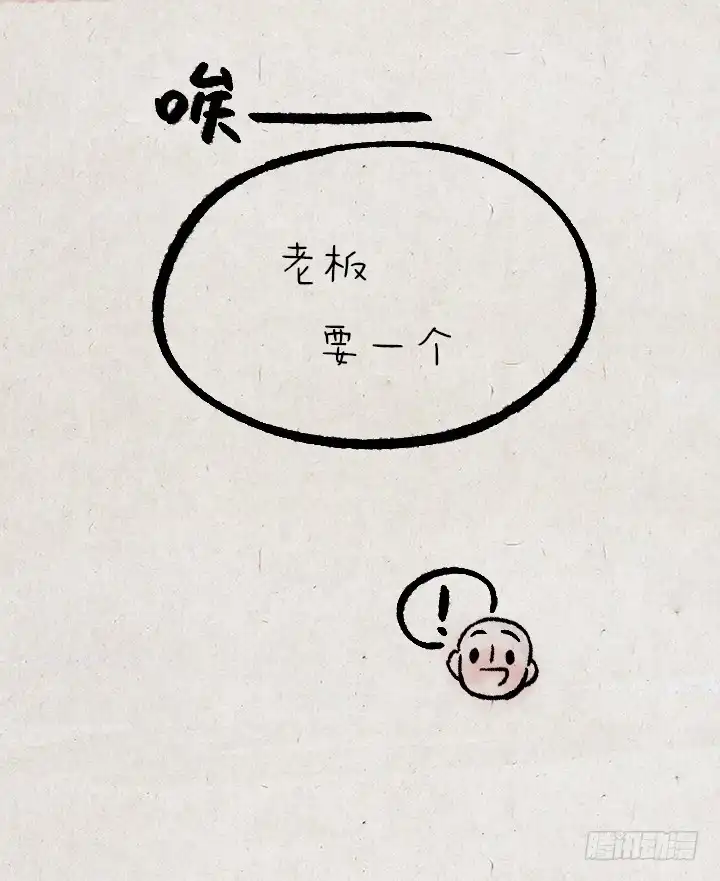 唉——
老板
要一个
!
腾讯动漫